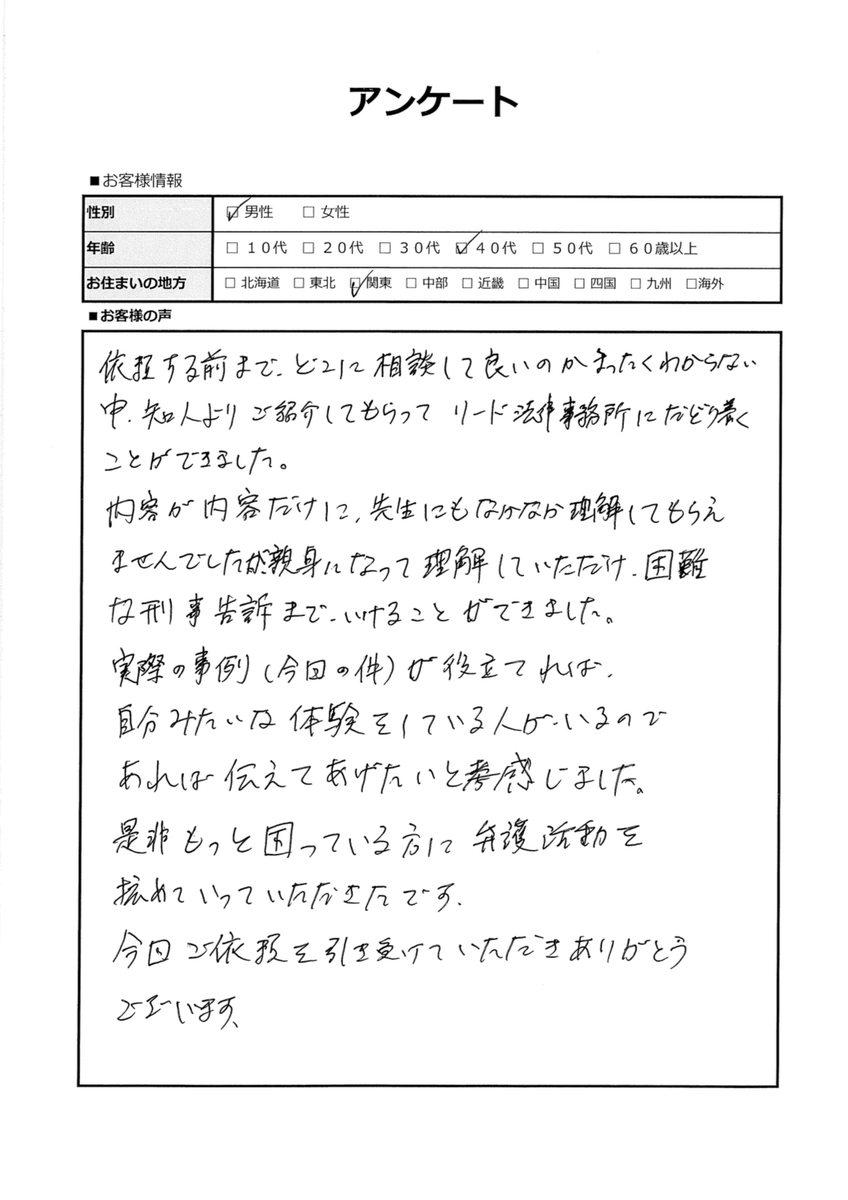 アンケート
■お客様情報
性別 ☑ 男性 □ 女性
年齢 □ 10代 □ 20代 □ 30代 ☑ 40代 □ 50代 □ 60歳以上
お住まいの地方 □ 北海道 □ 東北 ☑ 関東 □ 中部 □ 近畿 □ 中国 □ 四国 □ 九州 □海外
■お客様の声
依頼する前まで、どこに相談して良いのかまったくわからない
中、知人よりご紹介してもらって リード法律事務所にたどり着く
ことができました。
内容が内容だけに、先生にもなかなか理解してもらえ
ませんでしたが親身になって理解していただけ、困難
な刑事告訴まで、いけることができました。
実際の事例(今回の件)が役立てれば、
自分みたいな体験をしている人が、いるので
あれば伝えてあげたいと考感じました。
是非もっと困っている方に弁護活動を
拡めていっていただきたです。
今回ご依頼を引き受けていただきありがとう
ございます、